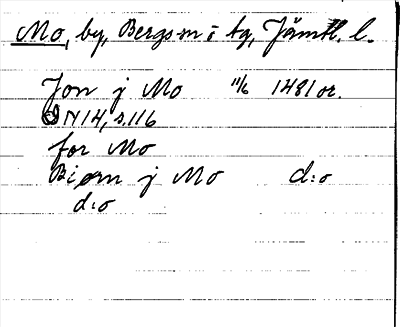 Mo, by, Bergs sn i tg, Jämtl. l.
Jon j Mo 11/6 1481 or.
DN 14, s. 116
for Mo
Biørn j Mo d:o
d:o